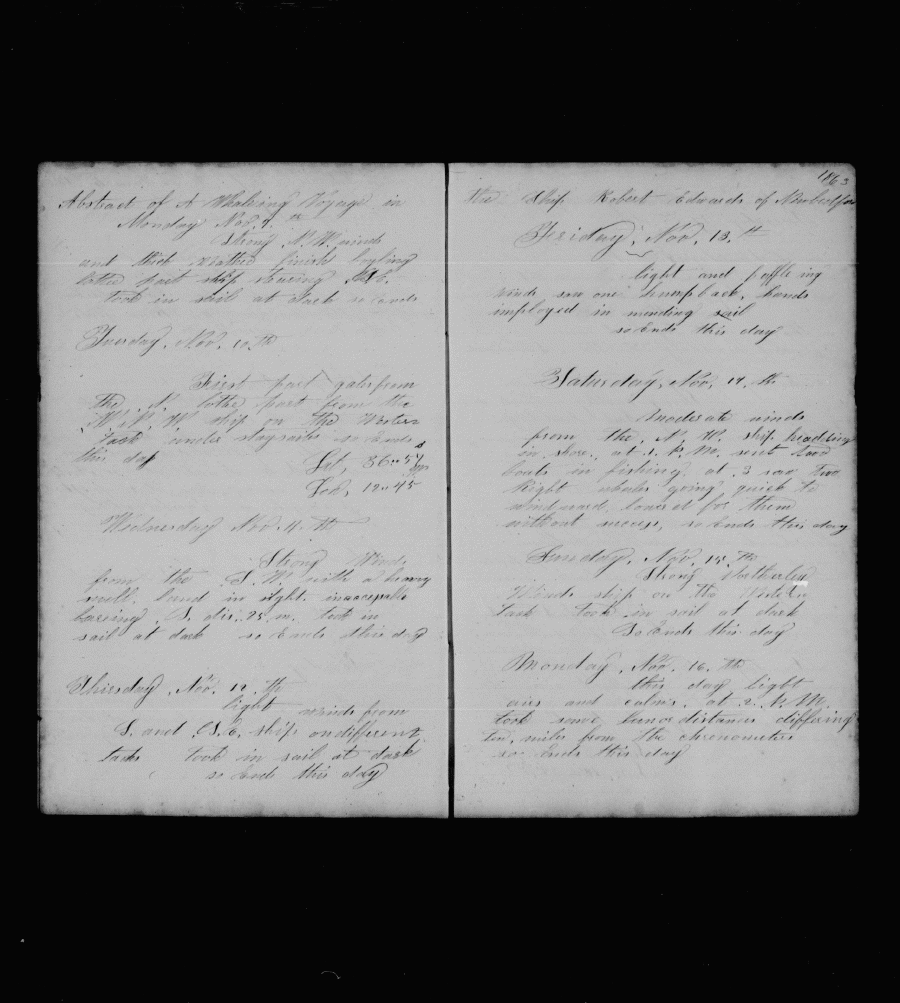 Abstract of A Whaleing Voyage in
Monday Nov. 9. th
Strong N. W. winds
and thick weather finish
lothe part ship stearing
took in sail at dark so ends
Tuesday, Nov. 10. th
First part gales from
the N. lothe part from the
W. N. W. ship on the Western
tack under staysailes so Ends
this day
Lat, 36..57
Lob, 12..45
Wednesday Nov. 11. th
Strong Winds
from the S. W. with a heavy
swell. land in sight.
bareing S. dis. 25 m. took in
sail at dark so Ends this day
Thirsday, Nov. 12. th
light winds from
S. and S. E. ship on different
tacks took in sail at dark
so Ends this day
1863
the Ship Robert Edwards of Newbedford
Friday, Nov. 13. th
light and paffleing
winds saw one humpback, hands
employed in mending sail
so Ends this day
Saturday, Nov. 14. th
Moderate winds
from the N. W. ship headding
in shore. at 1. P. M. sent two
boats in fishing at 3 saw two
Right whales going quick to
windward, lowered for them
without sucess, so Ends this day
Sunday, Nov. 15. th
Strong Sutherley
Winds ship on the Western
tack took in sail at dark
So Ends this day
Monday, Nov. 16. th
this day light
aires and calms. at 2. P. M.
took some lunor distances differing
ten miles from the chronometer
so Ends this day